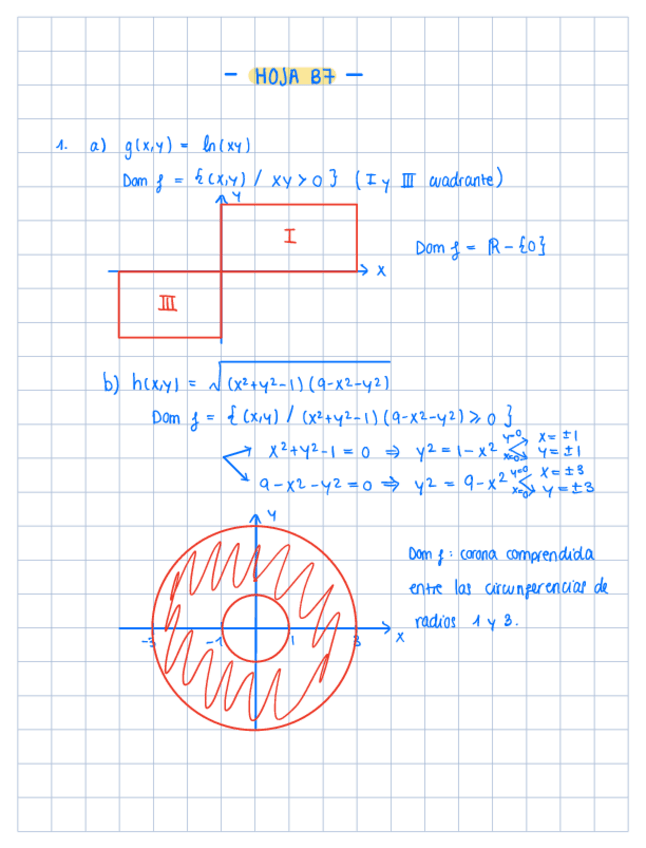 - HOJA B7 -
1. a) g(x,y) = ln(xy)
Dom f = {(x,y) / xy > 0} (I y III cuadrante)
y
I
Dom f = R - {0}
x
III
b) h(x,y) = √(x²+y²-1)(9-x²-y²)
Dom f = {(x,y) / (x²+y²-1)(9-x²-y²) ⩾ 0}
x²+y²-1 = 0 ⇒ y² = 1-x² y=0 x = ±1
x=0 y = ±1
9-x²-y² = 0 ⇒ y² = 9-x² y=0 x = ±3
x=0 y = ±3
y
Dom f: corona comprendida
entre las circunferencias de
radios 1 y 3.
-3 -1 1 3 x